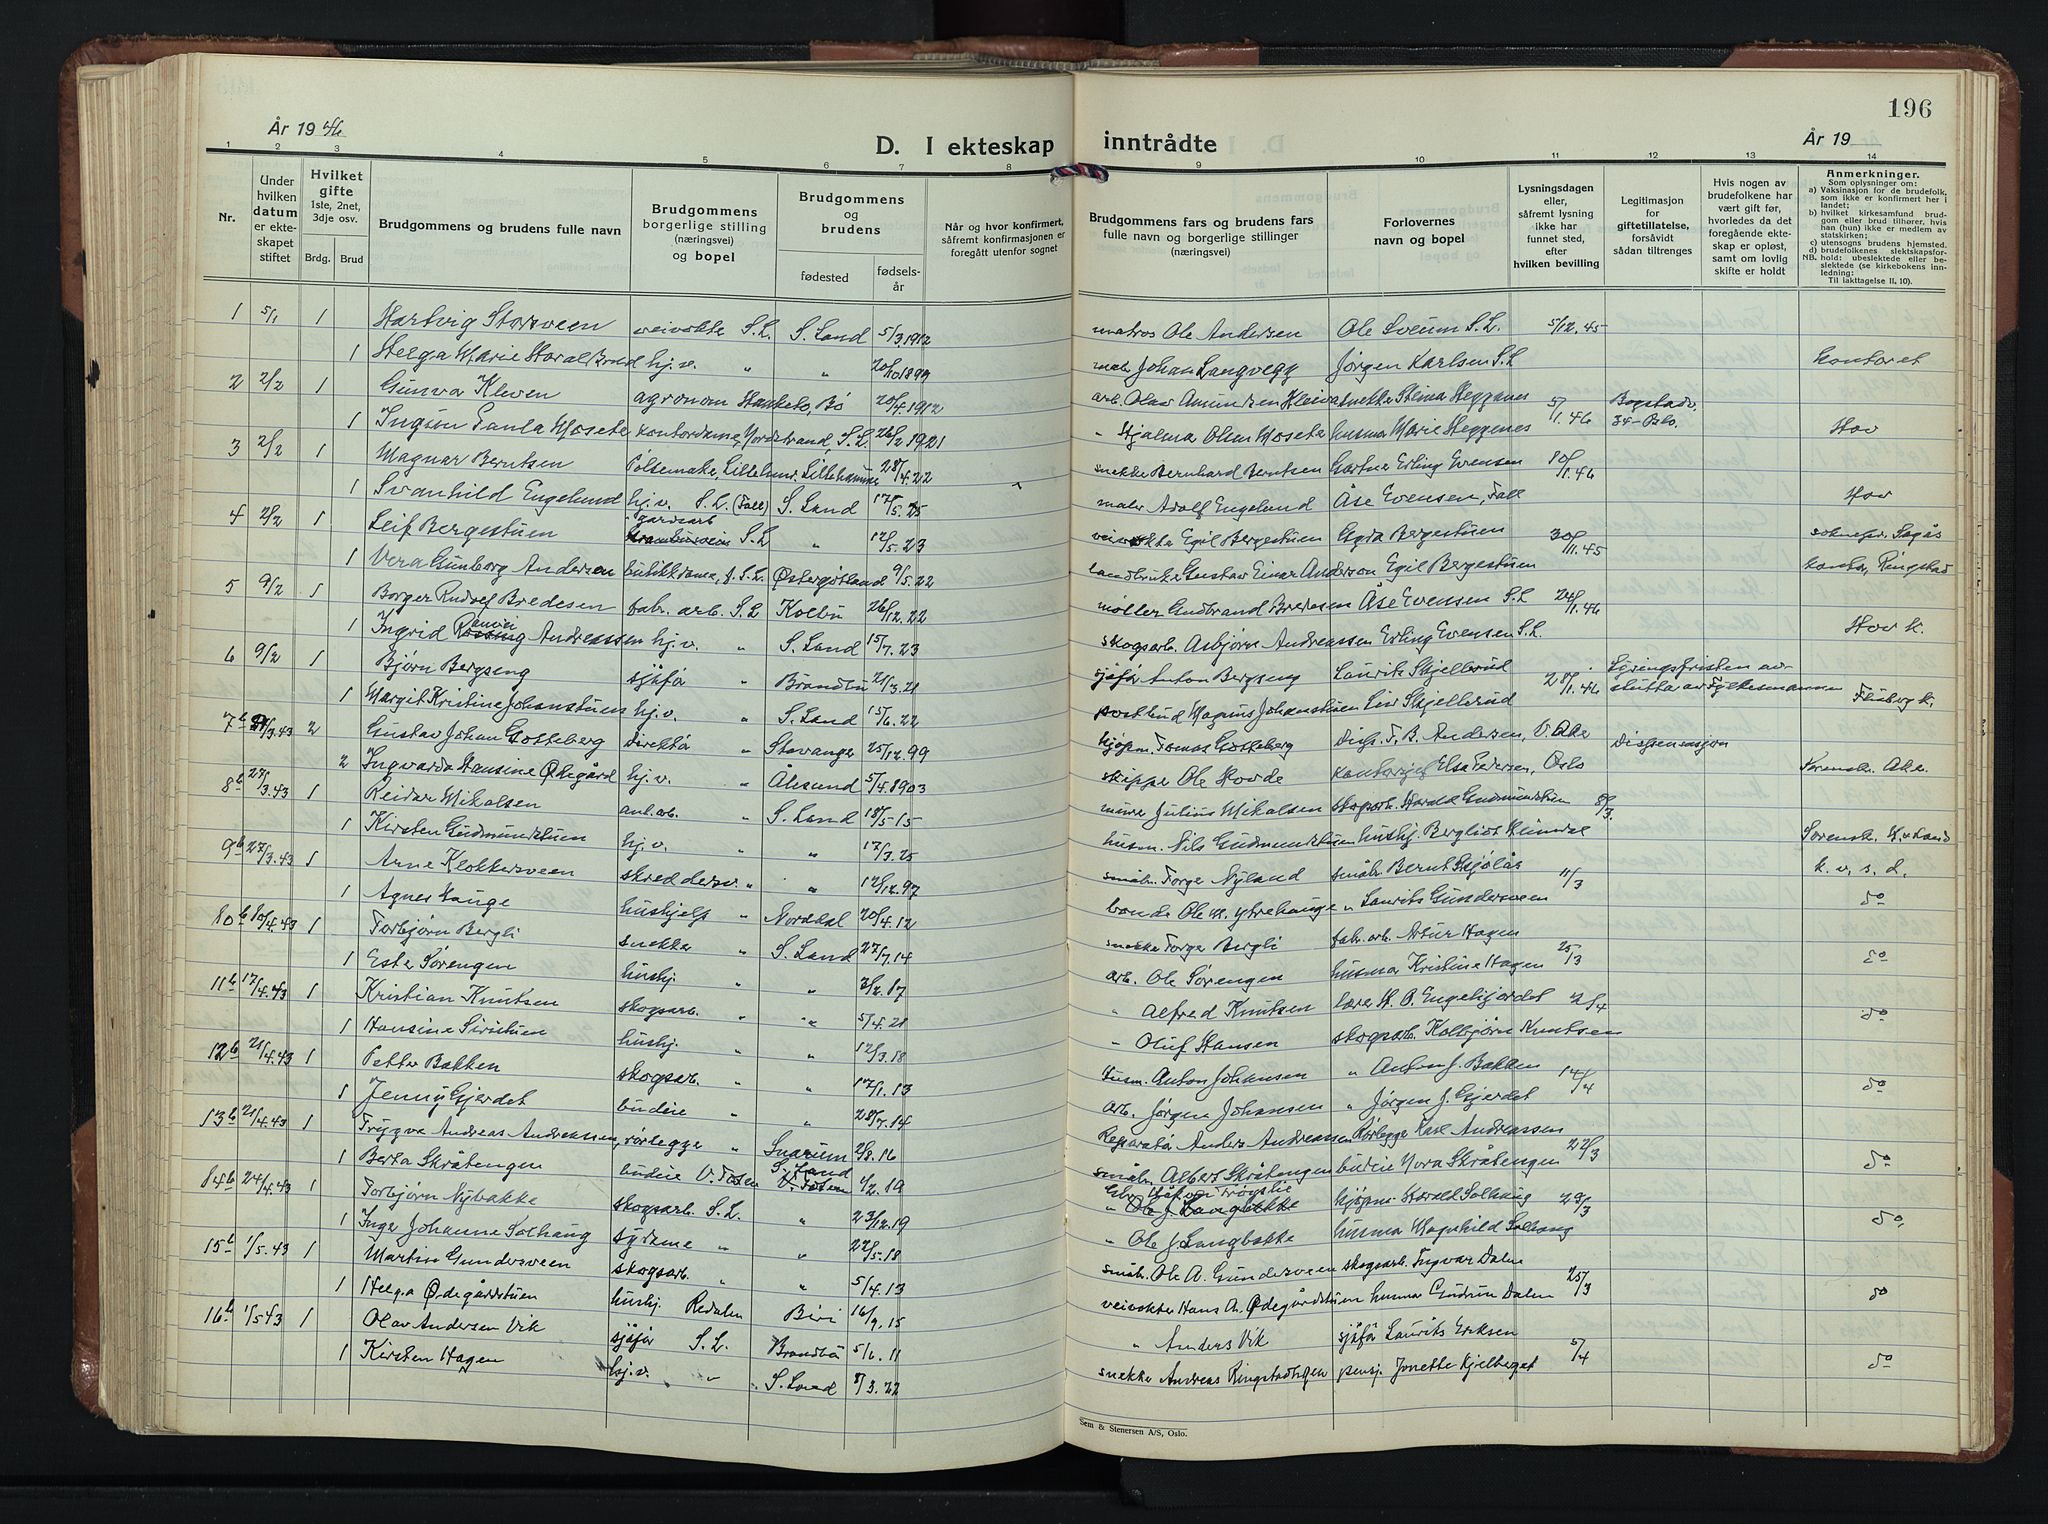 196
År 1946
D. I ekteskap inntrådte
År 19
1 2 3 4 5 6 7 8 9 10 11 12 13 14
Nr.
Under hvilken datum er ekteskapet stiftet
Hvilket gifte 1ste, 2net, 3dje osv.
Brdg. Brud
Brudgommens og brudens fulle navn
Brudgommens borgerlige stilling (næringsvei) og bopel
Brudgommens og brudens
fødested
fødselsår
Når og hvor konfirmert, såfremt konfirmasjonen er foregått utenfor sognet
Brudgommens fars og brudens fars fulle navn og borgerlige stillinger (næringsvei)
Forlovernes navn og bopel
Lysningsdagen eller, såfremt lysning ikke har funnet sted, efter hvilken bevilling
Legitimasjon for giftetillatelse, forsåvidt sådan tiltrenges
Hvis nogen av brudefolkene har vært gift før, hvorledes da det foregående ekteskap er opløst, samt om lovlig skifte er holdt
Anmerkninger.
Som oplysninger om:
a) Vaksinasjon for de brudefolk, som ikke er konfirmert her i landet;
b) hvilket kirkesamfund brudgom eller brud tilhører, hvis han (hun) ikke er medlem av statskirken;
c) utensogns brudens hjemsted.
d) brudefolkenes slektskapsforhold: ubeslektede eller beslektede (se kirkebokens innledning;
NB.
Til iakttagelse II. 10).
1 5/1 1 Hartvig Storsveen veivokte S.L. S. Land 5/3 1912 matros Ole Andersen Ole Sveum S.L. 5/12.45
1 Helga Marie Horal Brend hj.v. " " 20/10 1899 Johan Langvegg Jørgen Karlsen S.L kontoret
2 2/2 1 Gunva Kleven agronom Bø 20/4.1912 arb. Olav Amundsen 5/1.46 Bogstadv. 34 - Oslo.
1 Paula Moseter kontordame, Nordstrand, S.L. 26/2 1921 " Hjalmar Olsen Moseter husmor Marie Heggenes Hov
3 2/2 1 Magnar Berntsen Pølsemaker, Lillehammer 28/4.22 snekker Bernhard Berntsen Gartner Erling Evensen 10/1.46
1 Svanhild Engelund hj.v. S.L. (Fall) S. Land 17/5.25 maler Adolf Engelund Åse Evensen, Fall Hov
4 2/2 1 Leif Bergestuen gårdsarb S.L " 12/5.23 veivokter Egil Bergestuen Bergestuen 30/11.45 sokneprest Sagås
1 Vera Gunborg Andersson butikkdame, S.L. Østergøtland 9/5.22 landbruker Gustav Einar Anderson Egil Bergestuen Ringstad
5 9/2 1 Borger Rudolf Bredesen fabr. arb. S.L Kolbu 26/12.22 møller Gudbrand Bredesen Åse Evensen S.L 24/1.46
1 Ingrid Andreassen hj.v. " S. Land 15/7.23 skogsarb. Asbjørn Andreassen Erling Evensen S.L. Hov k.
6 9/2 1 Bjørn Bergseng sjåfør " Brandbu 21/3.21 sjåfør Anton Bergseng Laurits Skjellerud 28/1.46 Lysingsfristen avslutta av Fylkesmannen
1 Margit Kristine Johanstuen hj.v. " S. Land 15/6.22 postbud Magnus Johanstuen Liv Skjellerud Fluberg k.
7b 27/3.43 2 Gustav Johan Gotteberg direktør " Stavanger 25/12.99 kjøpm. Tomas Gotteberg Disp. F. B. Andersen, V. Aker Dispensasjon
2 Ingvarda Hansine Ødegård hj.v. " Ålesund 5/4.8903 skipper Ole Hovde kontorsjef Elsa Pedersen, Oslo Sorenskr. Aker
8b 27/3.43 1 Reidar Mikalsen anl.arb. " S. Land 18/5-15 murer Julius Mikalsen skogsarb. Harald Gudmundstuen 8/3.
1 Kirsten Gudmundstuen hj.v. " " 17/3.25 husm. Nils Gudmundstuen hushj. Bergliot Heimdal Sorenskr. H & Land
9b 27/3.43 1 Arne Klokkersveen skredderv. " " 12/12.97 småbr. Torger Nyland småbr. Bernt Skjølås 11/3 k. v. s. d.
1 Agnes Hauge hushjelp " Norddal 20/4.12 bonde Ole M. Ytrehauge " Laurits Gundersveen do
10b 10/4.43 1 Torbjørn Bergli snekker " S. Land 27/7.14 snekker Torger Bergli fabr. arb. Artur Hagen 25/3
1 Ester Sørengen hushj. " " 2/2.17 arb. Ole Sørengen husmor Kristine Hagen do
11b 17/4.43 1 Kristian Knutsen skogsarb. " " 5/4.21 " Alfred Knutsen lærer H. O. Engehjordet 2/4
1 Hansine Siristuen hushj. " " 12/3.18 " Oluf Hansen skogsarb. Kolbjørn Knutsen do
12b 21/4.43 1 Petter Bakken skogsarb. " " 17/1.13 husm. Anton Johansen " Anton J. Bakken 14/4
1 Jenny Gjerdet budeie " " 28/7.14 arb. Jørgen Johansen " Jørgen J. Gjerdet do
13b 21/4.43 1 Trygve Andreas Andreassen, rørlegger " Snarum 2/8.16 Reparatør Anders Andreassen Rørlegger Karl Andreassen 22/3
1 Berta Skråtengen budeie V. Toten S. Land 1/2.19 småbr. Albert Skråtengen budeie Nora Skråtengen do
14b 24/4.43 1 Torbjørn Nybakke skogsarb. S.L. " 23/12.19 kjøpm. Harald Solhaug 29/3
1 Inger Johanne Solhaug sydame " " 22/5.18 " Ole J. Langbakke husmor Magnhild Solhaug do,
15b 1/5.43 1 Martin Gundersveen skogsarb. " " 5/4.13 småbr. Ole A. Gundersveen skogsarb. Ingvar Dalen
1 Helga Ødegårdstuen hushj. Redalen Biri 16/9.15 veivokter Hans A. Ødegårdstuen husmor Gudrun Dalen 25/3 do
16b 1/5 43 1 Olav Andersen Vik sjåfør S.L. Brandbu 5/6.11 " Anders Vik sjåfør Laurits Eriksen 5/4
1 Kirsten Hagen hj.v. " S. Land 8/3.22 snekker Andreas Ringstadhagen pensj. Jonette Kjelberget do
Sem & Stenersen A/S, Oslo.